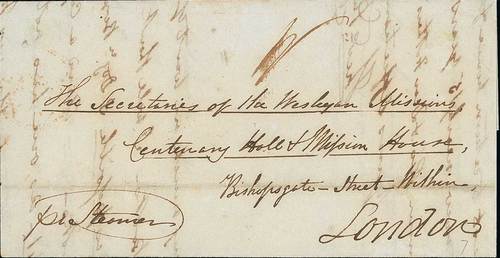 The Secretaries of the Wesleyan Missions
Centenary Hall & Mission House,
Bishopsgate-Street-Within,
pr Steamer
London
7